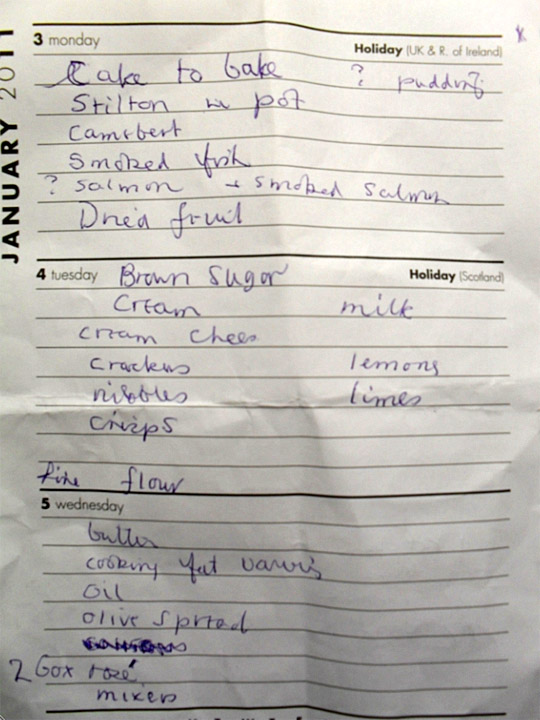 JANUARY 2011
3 monday
Holiday (UK & R. of Ireland)
Cake to bake ? pudding
Stilton in pot
Camebert
Smoked fish
? Salmon + smoked Salmon
Dried fruit
4 tuesday Brown Sugar Holiday (Scotland)
Cream milk
cream chees
crackers lemons
nibbles limes
crisps
fine flour
5 wednesday
butter
cooking fat
oil
olive spread
2 box rosé
mixers